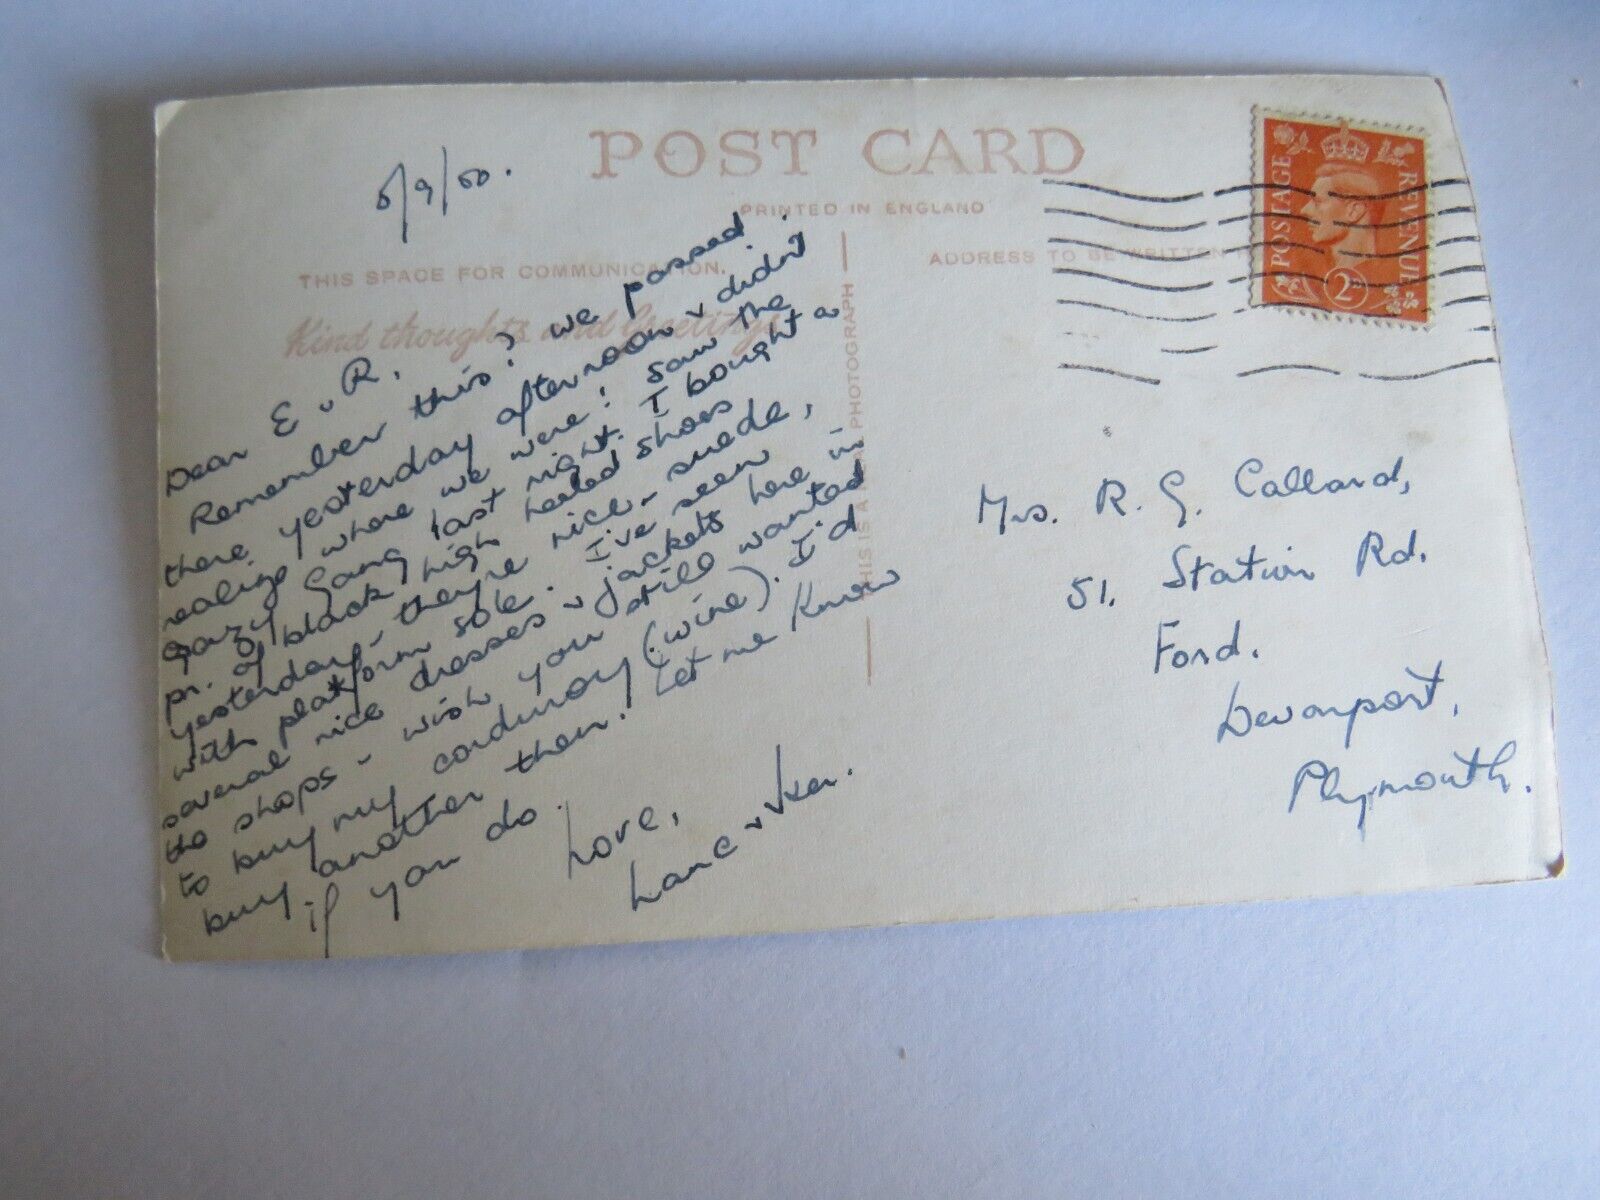 POST CARD
PRINTED IN ENGLAND
5/9/50.
THIS SPACE FOR COMMUNICATION.
ADDRESS TO BE WRITTEN
Kind thoughts and Greetings
THIS IS A REAL PHOTOGRAPH
Dear E & R.
Remember this? We passed
there yesterday afternoon & didn't
realize where we were! Saw the
Crazy Gang last night. I bought a
pr. of black high heeled shoes
yesterday - they're nice - suede,
with platform sole. I've seen
several nice dresses & jackets here in
the shops - wish you still wanted
to buy my corduroy (wine). I'd
buy another then. Let me know
if you do.
Love,
Lance & Ken.
Mrs. R. G. Callard,
51, Station Rd,
Ford.
Devonport,
Plymouth.
POSTAGE
REVENUE
2D